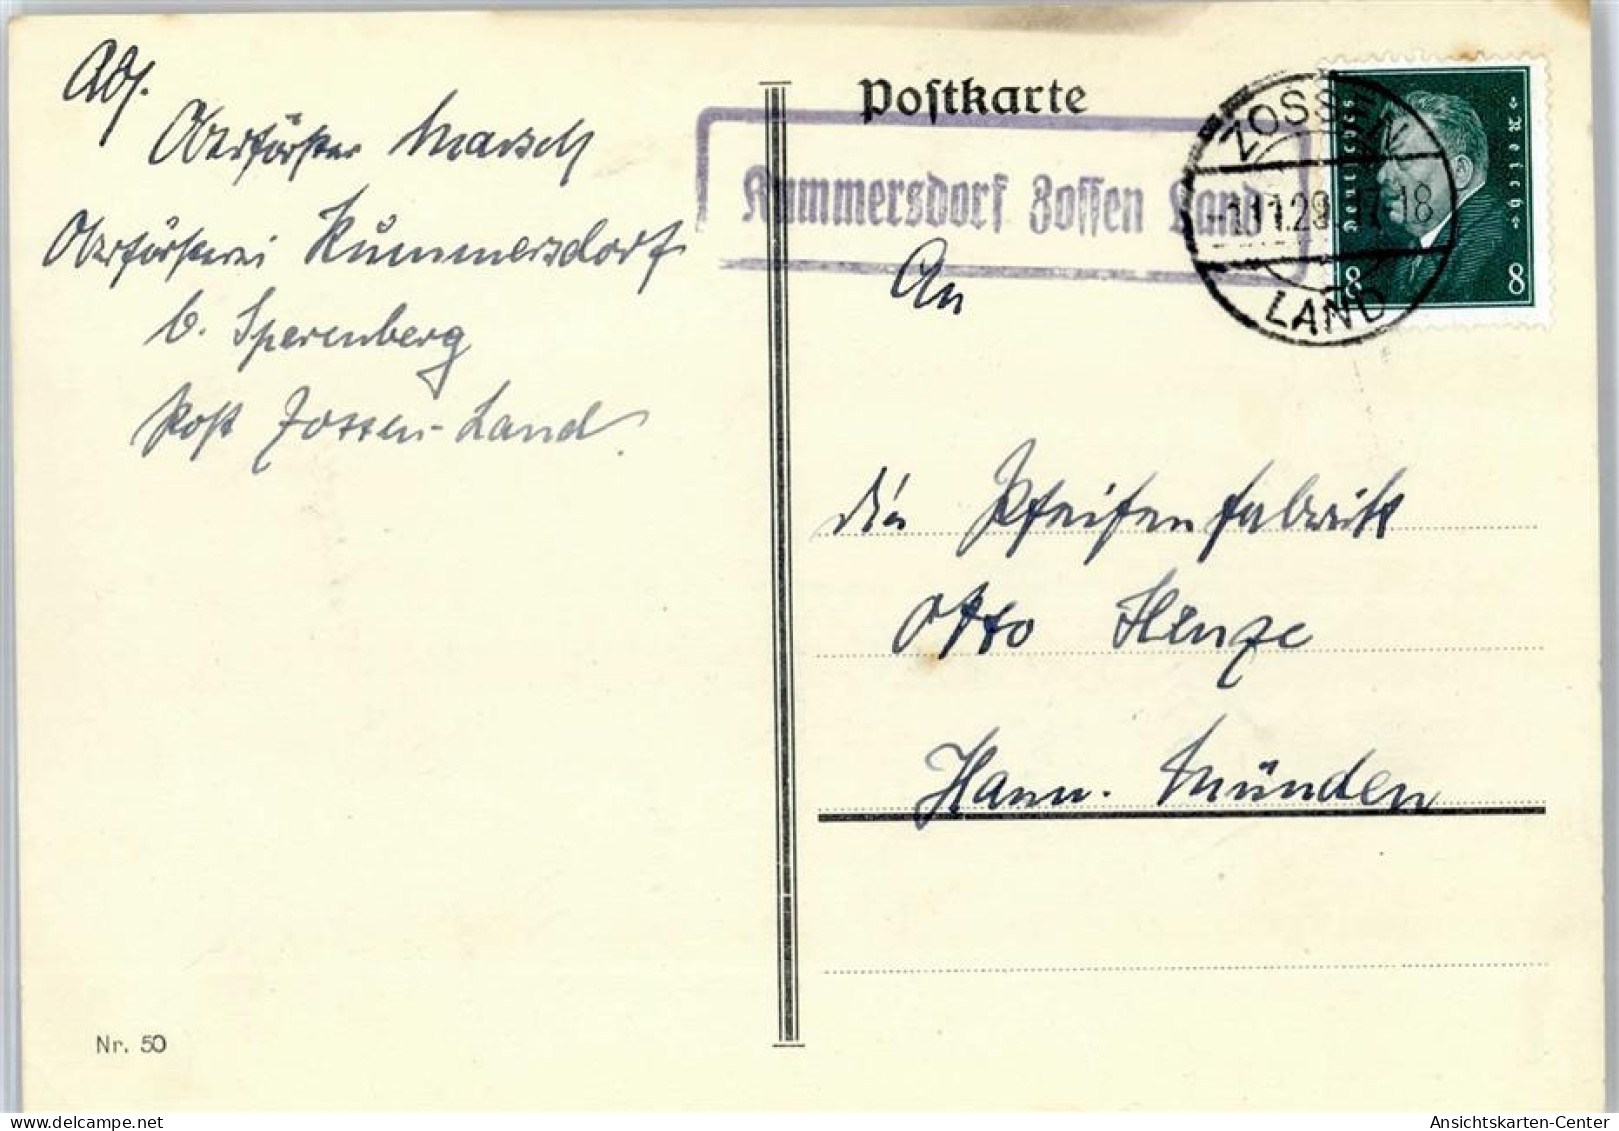 Abs.
Oberförster Marsch
Oberförsterei Kummersdorf
b. Sperenberg
Post Zossen-Land.
Nr. 50
Postkarte
Kummersdorf Zossen Land
ZOSSEN
-1.11.29. 17-18
LAND
Deutsches Reich
8 8
An
die Pfeifenfabrik
Otto Henze
Hann. Münden
Ansichtskarten-Center